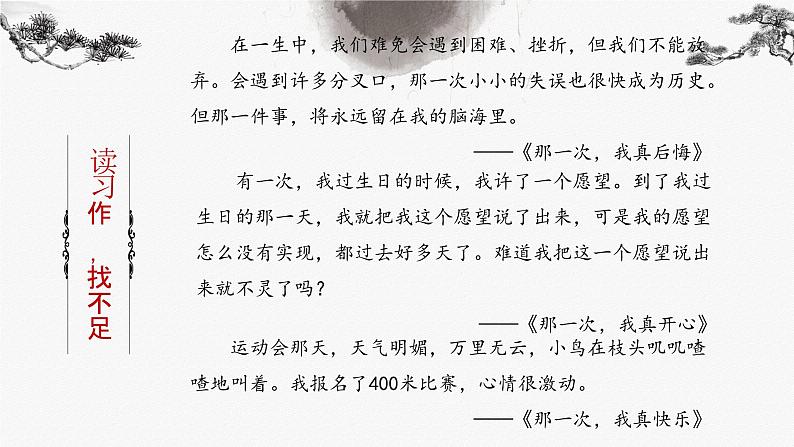 读习作,找不足
在一生中，我们难免会遇到困难、挫折，但我们不能放
弃。会遇到许多分叉口，那一次小小的失误也很快成为历史。
但那一件事，将永远留在我的脑海里。
——《那一次，我真后悔》
有一次，我过生日的时候，我许了一个愿望。到了我过
生日的那一天，我就把我这个愿望说了出来，可是我的愿望
怎么没有实现，都过去好多天了。难道我把这一个愿望说出
来就不灵了吗？
——《那一次，我真开心》
运动会那天，天气明媚，万里无云，小鸟在枝头叽叽喳
喳地叫着。我报名了400米比赛，心情很激动。
——《那一次，我真快乐》